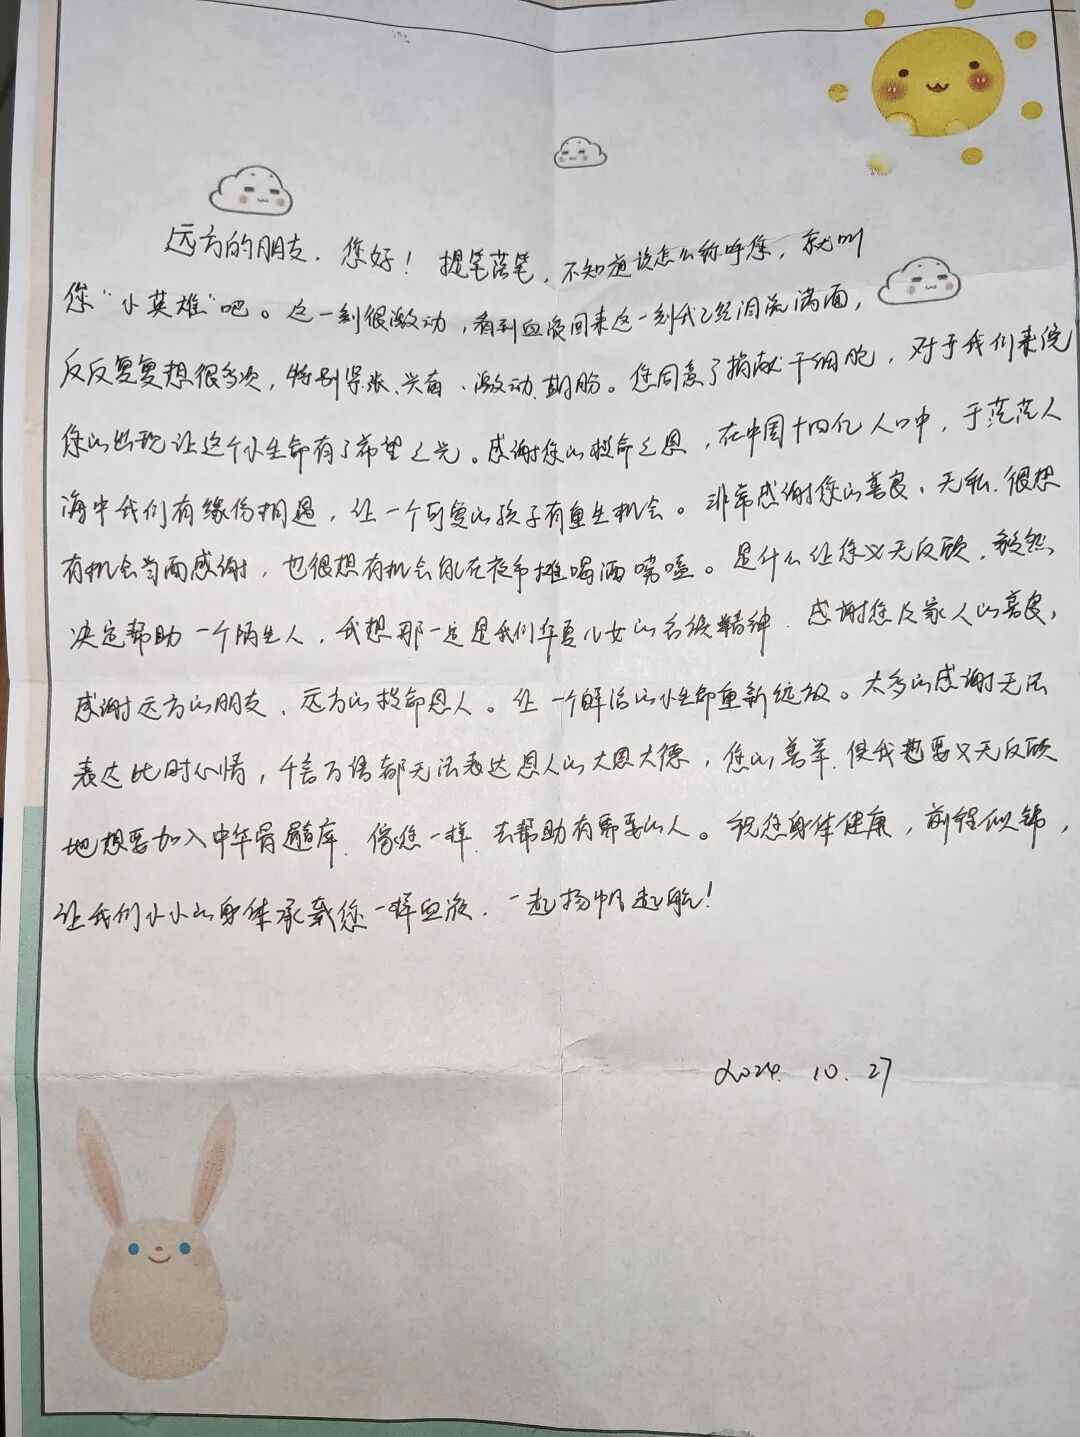 远方的朋友，您好！提笔落笔，不知道该怎么称呼您，就叫
您“小英雄”吧。这一刻很激动，看到血液回来这一刻我已经泪流满面，
反反复复想很多次，特别紧张、兴奋、激动、期盼。您同意了捐献干细胞，对于我们来说
您的出现让这个小生命有了希望之光。感谢您的救命之恩，在中国十四亿人口中，于茫茫人
海中我们有缘份相遇，让一个可爱的孩子有重生机会。非常感谢您的善良、无私，很想
有机会当面感谢，也很想有机会能在夜市摊喝酒唠嗑。是什么让您义无反顾，毅然
决定帮助一个陌生人，我想那一定是我们华夏儿女的精神，感谢您及家人的善良，
感谢远方的朋友，远方的救命恩人。让一个鲜活的小生命重新绽放。太多的感谢无法
表达此时心情，千言万语都无法表达恩人的大恩大德，您的善举，使我想要义无反顾
地想要加入中华骨髓库，像您一样，去帮助有需要的人。祝您身体健康，前程似锦，
让我们小小的身体承载您一样血液，一起扬帆起航！
2024. 10. 27